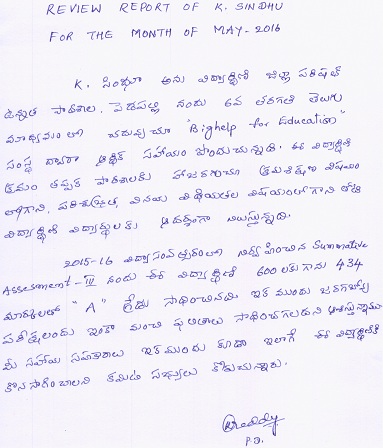 REVIEW REPORT OF K. SINDHU
FOR THE MONTH OF MAY-2016
K. సింధూ అను విద్యార్థిణి జిల్లా పరిషత్
ఉన్నత పాఠశాల, పెడపల్లి నందు 6వ తరగతి తెలుగు
మాధ్యమంలో చదువుచూ "Bighelp for Education"
సంస్థ ద్వారా ఆర్థిక సహాయం పొందుచున్నది. ఈ విద్యార్థిణి
క్రమం తప్పక పాఠశాలకు హాజరగుచూ క్రమశిక్షణ విషయం
లోగాని, పరిశుభ్రత, వినయ విధేయతల విషయంలోగాని తోటి
విద్యార్థిణి విద్యార్థులకు ఆదర్శంగా నిలుస్తున్నది.
2015-16 విద్యాసంవత్సరంలో నిర్వహించిన Summative
Assessment-III నందు ఈ విద్యార్థిణి 600 లకు గాను 434
మార్కులతో "A" గ్రేడు సాధించినది ఇక ముందు జరగబోయే
పరీక్షలందు ఇంకా మంచి ఫలితాలు సాధించగలదని ఆశిస్తున్నాము
మీ సహాయ సహకారాలు ఇకముందు కూడా ఇలాగే ఈ విద్యార్థిణికి
కొనసాగించాలని కమిటి సభ్యులు కోరుచున్నారు.